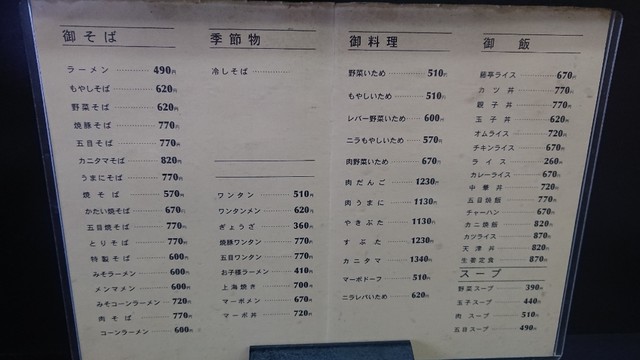 御そば
ラーメン 490円
もやしそば 620円
野菜そば 620円
焼豚そば 770円
五目そば 770円
カニタマそば 820円
うまにそば 770円
焼そば 570円
かたい焼そば 670円
五目焼そば 770円
とりそば 770円
特製そば 600円
みそラーメン 600円
メンマメン 600円
みそコーンラーメン 720円
肉そば 770円
コーンラーメン 600円
季節物
冷しそば
ワンタン 510円
ワンタンメン 620円
ぎょうざ 360円
焼豚ワンタン 770円
五目ワンタン 770円
お子様ラーメン 410円
上海焼き 700円
マーボメン 670円
マーボ丼 720円
御料理
野菜いため 510円
もやしいため 510円
レバー野菜いため 600円
ニラもやしいため 570円
肉野菜いため 670円
肉だんご 1230円
肉うまに 1130円
やきぶた 1130円
すぶた 1230円
カニタマ 1340円
マーボドーフ 510円
ニラレバいため 620円
御飯
ライス 670円
カツ丼 770円
親子丼 770円
玉子丼 620円
オムライス 720円
チキンライス 670円
ライス 260円
カレーライス 670円
中華丼 720円
五目焼飯 770円
チャーハン 670円
カニ焼飯 820円
カツライス 870円
天津丼 820円
生姜定食 870円
スープ
野菜スープ 390円
玉子スープ 440円
肉スープ 510円
五目スープ 490円